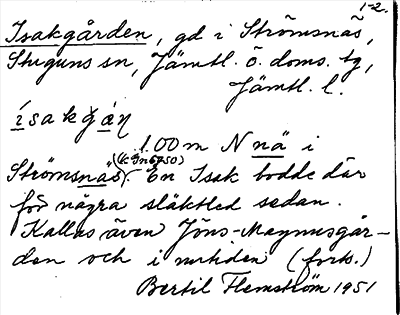 1-2.
Isakgården, gd i Strömsnäs,
Stuguns sn, Jämtl. ö. doms. tg,
Jämtl. l.
ísakgáṇ
1.00 m N nä i
Strömsnäs. En Isak bodde där
för några släktled sedan.
Kallas även Jöns-Magnusgår-
den och i nutiden (forts.)
Bertil Flemström 1951